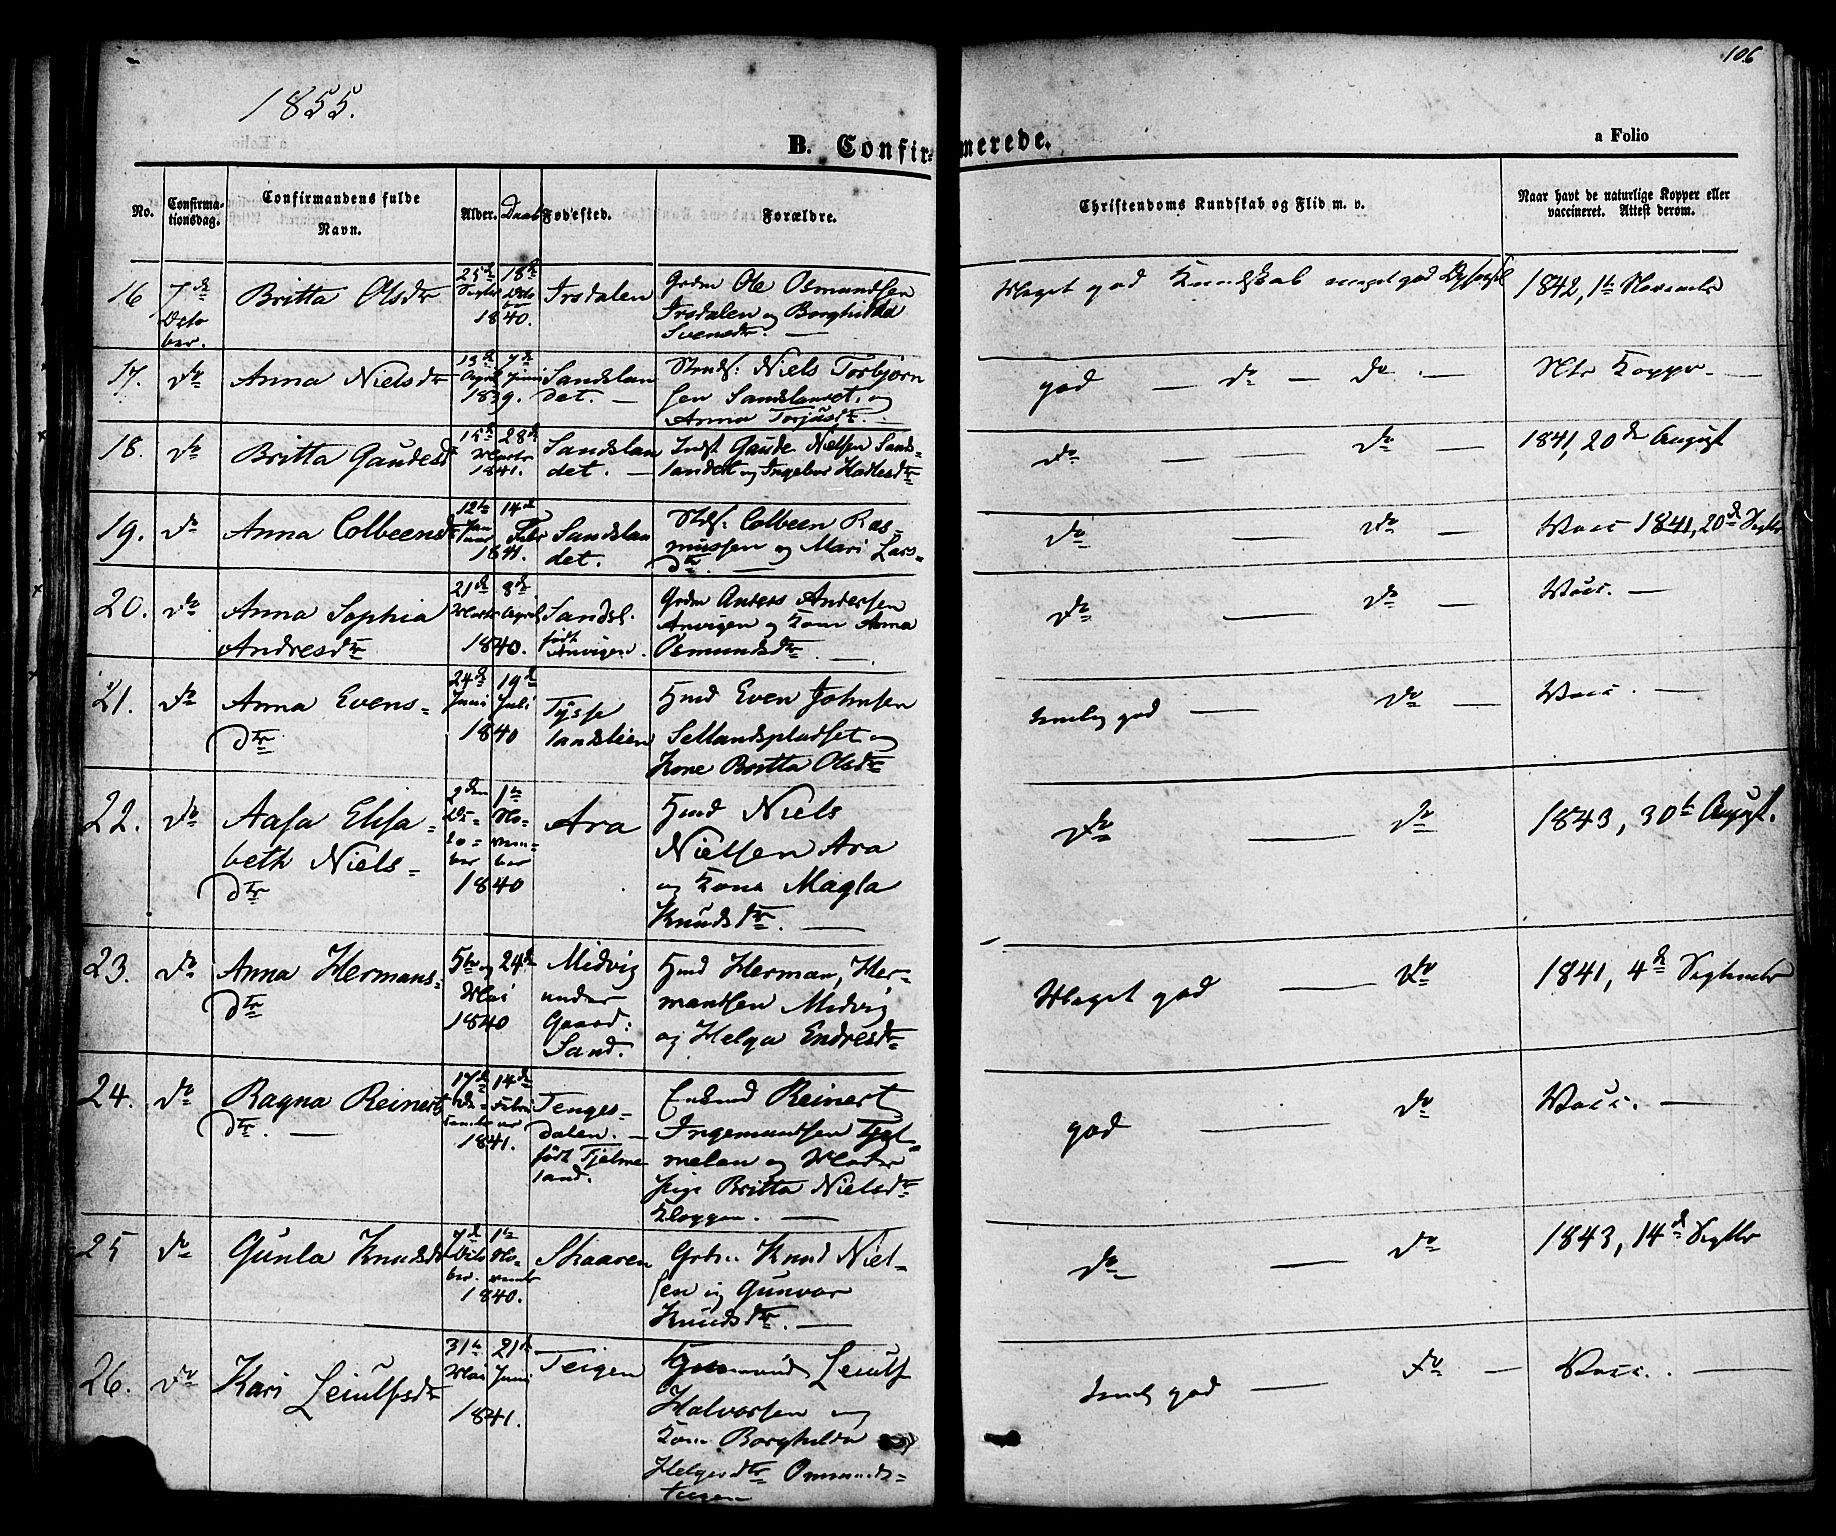 106
1855.
B. Confir-
merede.
a Folio
No.
Confirma-
tionsdag.
Confirmandens fulde
Navn.
Alder.
Daab
Fødested.
Forældre.
Christendoms Kundskab og Flid m. v.
Naar havt de naturlige Kopper eller
vaccineret. Attest derom.
16
7de
Octo
ber.
Britta Olsdtr
25de
Septbr
18de
Octo
ber
1840.
Irsdalen
Grdm Ole Osmundsen
Irsdalen og Borghilda
Svensdtr. —
Meget god Kundskab meget god
1842, 1te Novembr
17.
do
Anna Nielsdtr
13de
April
7de
Juni
1839.
Sandslan
det. —
Niels Torbjørn
sen Sandslandet. og
Anna Torjusdtr. —
god — do — do. —
Kopper —
18.
do
Britta Gaudesdtr
15de
Marts
28de
1841.
Sandslan
det. —
Indst Gaude Nielsen Sands-
landet og Ingebor Hadlesdtr
do — do —
1841, 20de August
19.
do
Anna Colbeensdtr
12te
Jan
uar
14de
Febr
1841.
Sandslan
det.
Colbeen Ras-
mussen og Mari Lars-
dtr. —
do — do —
Vacc 1841, 20de Septbr
20.
do
Anna Sophia
Andresdtr
21de
Marts
8de
April
1840.
Sandsl.
født
Anvigen.
Grdm Anders Andersen
Anvigen og Kone Anna
Osmundsdtr —
do — do —
Vacc. —
21.
do
Anna Evens-
dtr
24de
Juni
19de
Juli
1840
Tysse
landslien
Hmd Even Johnsen
Sellandspladset og
Kone Britta Olsdtr
temlig god — do —
Vacc. —
22.
do
Aasa Elisa-
beth Niels-
dtr
2den
Oc-
to-
ber
1te
No-
vem-
ber
1840
Ara
Hmd Niels
Nielsen Ara
og Kone Magla
Knudsdtr. —
do — do
1843, 30te August.
23.
do
Anna Hermans-
dtr
5te og
24de
Mai
1840
Midvig
under
Gaard:
Sand.
Hmd Herman Her-
mandsen Midvig
og Helga Endresdtr
Meget god — do
1841, 4de Septembr
24.
do
Ragna Reinerts
dtr. —
17de
De-
cember
14de
Febru
ar
1841.
Tenges-
dalen. —
født Tjelme
land.
Enkemd Reinert
Ingemundsen Tjel-
melan og
pige Britta Nielsdtr
Kloggen. —
god — do
Vacc. —
25
do
Gunla Knudsdtr
7de
Octo
ber.
1te
No-
vembr
1840.
Skaaren
Grbr. Knud Niel-
sen og Gunvor
Knudsdtr. —
do — do
1843, 14de Septbr
26.
do
Kari Leiulfsdtr
31te
Mai
21de
Juni
1841.
Teigen
Leiulf
Halvorsen og
Kone Borghilda
Helgesdtr Ommunds-
teigen
temlig god — do —
Vacc. —